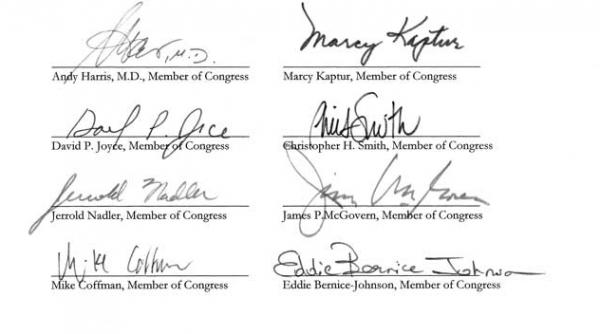 A Harris, M.D.
Marcy Kaptur
Andy Harris, M.D., Member of Congress
Marcy Kaptur, Member of Congress
David P. Joyce
Chris Smith
David P. Joyce, Member of Congress
Christopher H. Smith, Member of Congress
Jerrold Nadler
Jim McGovern
Jerrold Nadler, Member of Congress
James P.McGovern, Member of Congress
Mike Coffman
Eddie Bernice Johnson
Mike Coffman, Member of Congress
Eddie Bernice-Johnson, Member of Congress